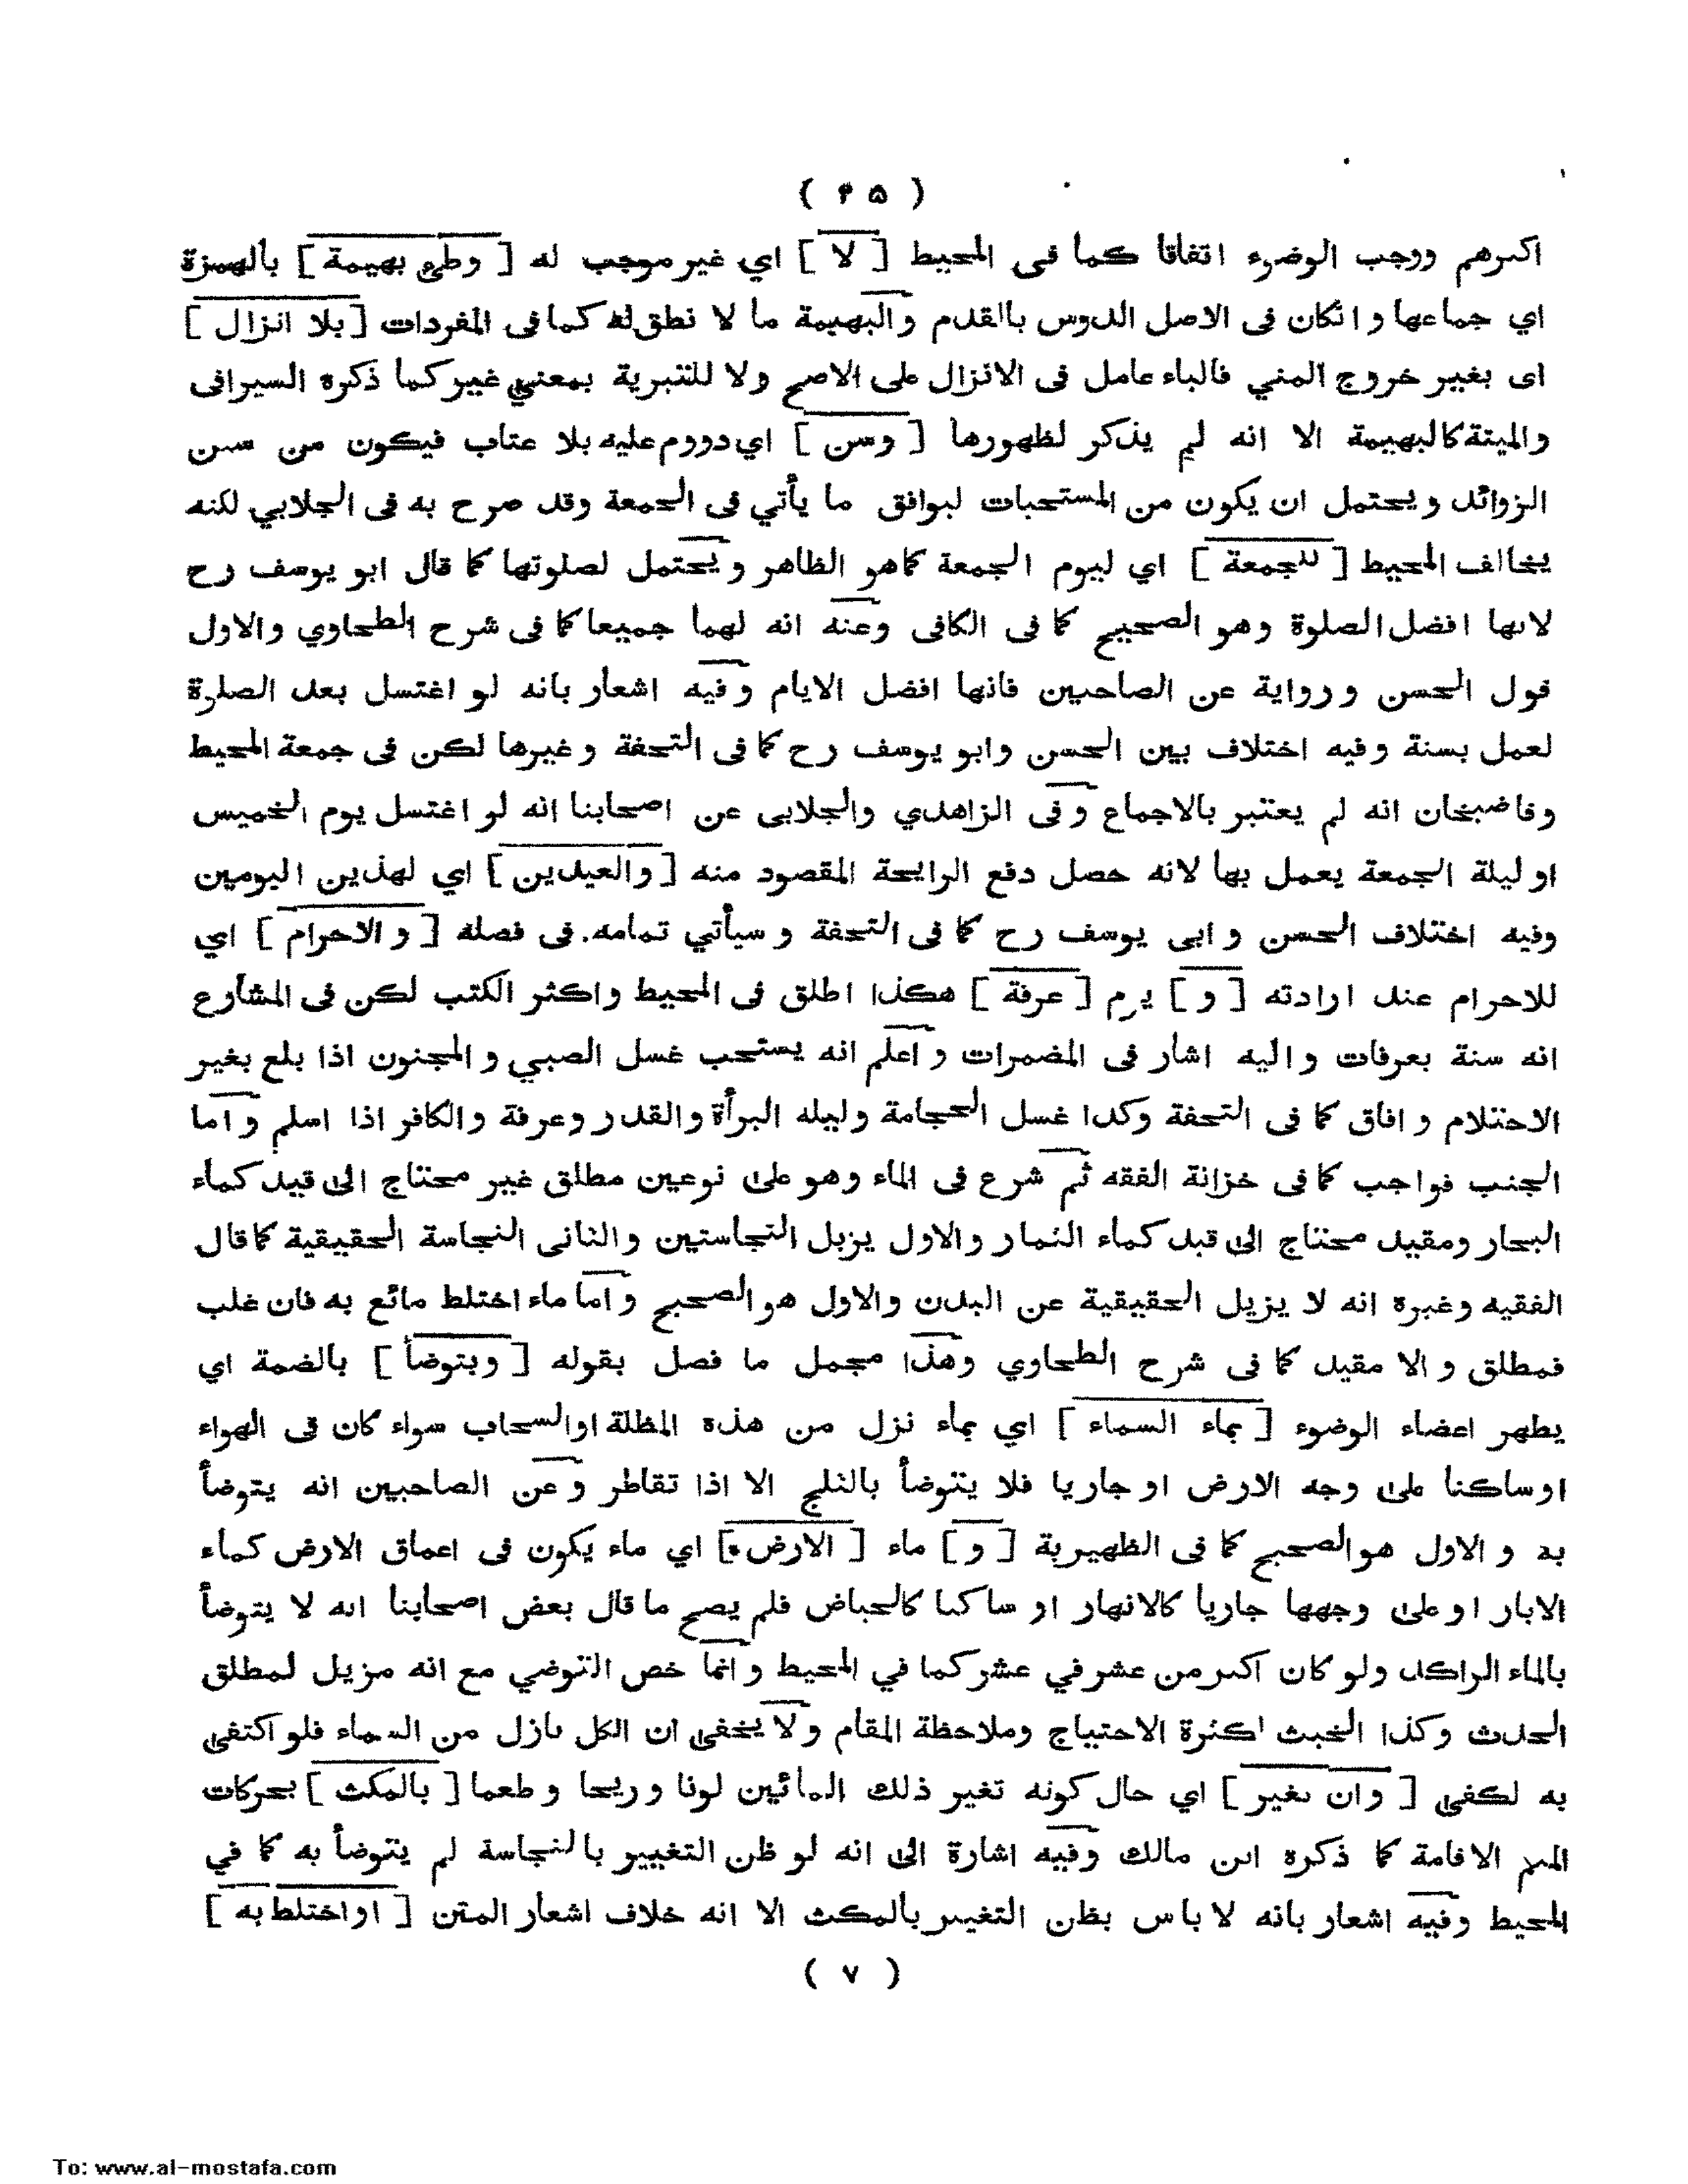 ( ٢٥ )
اكثرهم ووجب الوضوء اتفاقا كما في المحيط [ لا ] اي غير موجب له [ وطي بهيمة ] بالهمزة
اي جماعها وانكان في الاصل الدوس بالقدم والبهيمة ما لا نطق له كما في المفردات [ بلا انزال ]
اى بغير خروج المني فالباء عامل في الانزال على الاصح ولا للتبرية بمعني غير كما ذكره السيرافى
والميتة كالبهيمة الا انه لم يذكر لظهورها [ وسن ] اي دووم عليه بلا عتاب فيكون من سنن
الزوائد ويحتمل ان يكون من المستحبات ليوافق ما يأتي فى الجمعة وقد صرح به فى الجلابي لكنه
يخالف المحيط [ للجمعة ] اي ليوم الجمعة كماهو الظاهر ويحتمل لصلوتها كما قال ابو يوسف رح
لانها افضل الصلوة وهو الصحيح كما فى الكافى وعنه انه لهما جميعا كما فى شرح الطحاوي والاول
قول الحسن ورواية عن الصاحبين فانها افضل الايام وفيه اشعار بانه لو اغتسل بعد الصلوة
لعمل بسنة وفيه اختلاف بين الحسن وابو يوسف رح كما فى التحفة وغيرها لكن فى جمعة المحيط
وقاضيخان انه لم يعتبر بالاجماع وفى الزاهدي والجلابى عن اصحابنا انه لو اغتسل يوم الخميس
او ليلة الجمعة يعمل بها لانه حصل دفع الرايحة المقصود منه [ والعيدين ] اي لهذين اليومين
وفيه اختلاف الحسن وابى يوسف رح كما فى التحفة وسيأتي تمامه. فى فصله [ والاحرام ] اي
للاحرام عند ارادته [ و ] يوم [ عرفة ] هكذا اطلق فى المحيط واكثر الكتب لكن فى المشارع
انه سنة بعرفات واليه اشار فى المضمرات واعلم انه يستحب غسل الصبي والمجنون اذا بلع بغير
الاحتلام وافاق كما فى التحفة وكدا غسل الحجامة وليله البرأة والقدر وعرفة والكافر اذا اسلم واما
الجنب فواجب كما فى خزانة الفقه ثم شرع فى الماء وهو على نوعين مطلق غير محتاج الى قيد كماء
البحار ومقيد محتاج الى قيد كماء الثمار والاول يزيل النجاستين والثانى النجاسة الحقيقية كما قال
الفقيه وغيره انه لا يزيل الحقيقية عن البدن والاول هو الصحيح واما ماء اختلط مائع به فان غلب
فمطلق والا مقيد كما فى شرح الطحاوي وهذا مجمل ما فصل بقوله [ ويتوضأ ] بالضمة اي
يطهر اعضاء الوضوء [ بماء السماء ] اي بماء نزل من هذه المظلة اوالسحاب سواء كان فى الهواء
اوساكنا على وجه الارض او جاريا فلا يتوضأ بالثلج الا اذا تقاطر وعن الصاحبين انه يتوضأ
به والاول هو الصحيح كما فى الظهيرية [ و ] ماء [ الارض ] اي ماء يكون فى اعماق الارض كماء
الابار او على وجهها جاريا كالانهار او ساكنا كالحياض فلم يصح ما قال بعض اصحابنا انه لا يتوضأ
بالماء الراكد ولو كان اكثر من عشر في عشر كما في المحيط وانما خص التوضي مع انه مزيل لمطلق
الحدث وكذا الخبث لكثرة الاحتياج وملاحظة المقام ولا يخفى ان الكل نازل من السماء فلو اكتفى
به لكفى [ وان تغير ] اي حال كونه تغير ذلك المائين لونا وريحا وطعما [ بالمكث ] بحركات
الميم الاقامة كما ذكره ابن مالك وفيه اشارة الى انه لو ظن التغيير بالنجاسة لم يتوضأ به كما في
المحيط وفيه اشعار بانه لا باس بظن التغيير بالمكث الا انه خلاف اشعار المتن [ او اختلط به ]
( ٧ )
To: www.al-mostafa.com